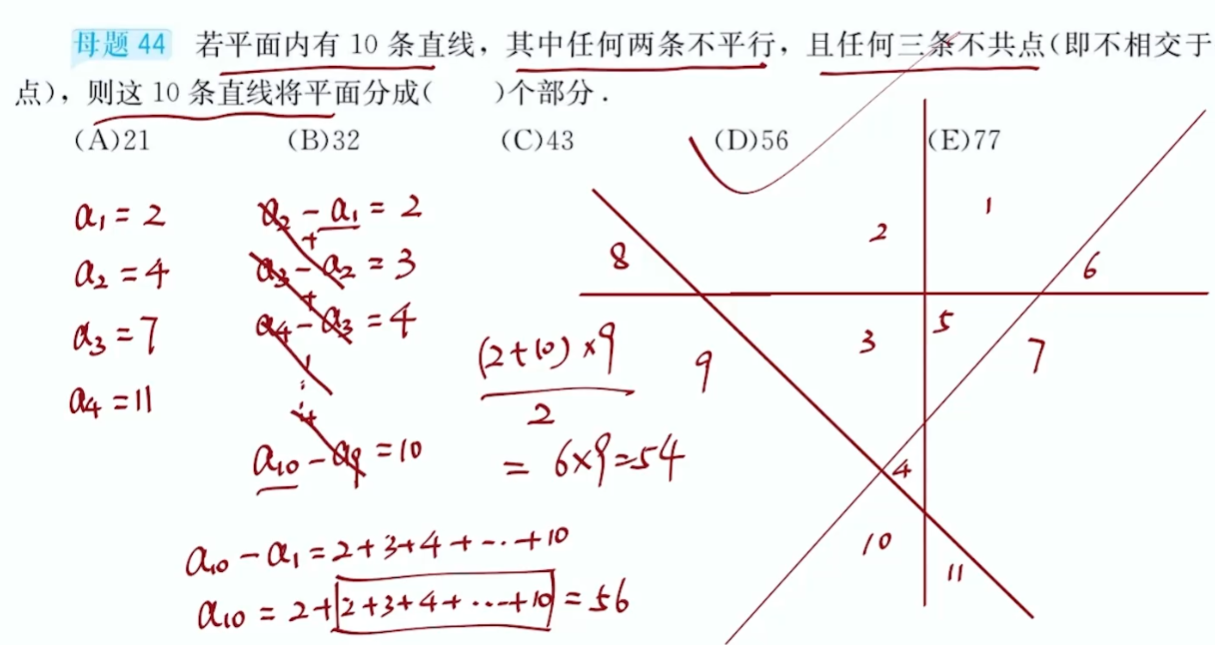 母题 44 若平面内有 10 条直线，其中任何两条不平行，且任何三条不共点(即不相交于
点)，则这 10 条直线将平面分成( )个部分．
(A)21 (B)32 (C)43 (D)56 (E)77
a₁ = 2
a₂ = 4
a₃ = 7
a₄ = 11
a₂ - a₁ = 2
+
a₃ - a₂ = 3
+
a₄ - a₃ = 4
⋮
+
a₁₀ - a₉ = 10
(2+10)×9
2
= 6×9=54
a₁₀ - a₁ = 2+3+4+⋯+10
a₁₀ = 2+2+3+4+⋯+10 = 56
1
2
8
6
3
5
7
9
4
10
11